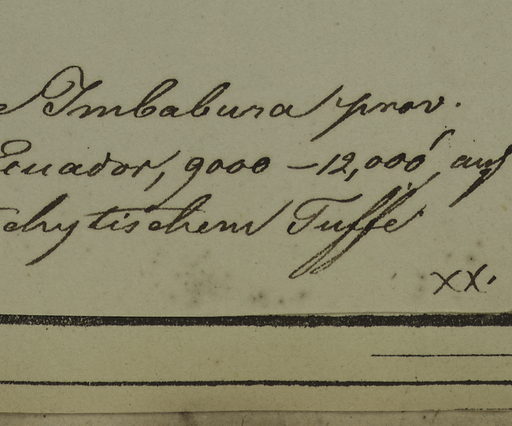 Imbabura prov.
Ecuador, 9000–12,000' auf
chytischem Tuffe
XX.